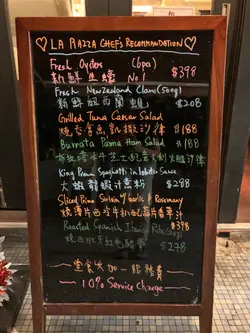 ♡ LA PIAZZA CHEF'S RECOMMENDATION ♡
Fresh Oysters (6pcs)
新鮮生蠔 No1 $398
Fresh NewZealand Clams(500g)
新鮮紐西蘭蜆 $208
Grilled Tuna Caesar Salad
燒吞拿魚凱撒沙律 $188
Burrata Parma Ham Salad
芝士 火腿沙律 $188
King Prawn Spaghetti in Lobster Sauce
大蝦龍蝦汁意粉 $288
Sliced Prime Sirloin w/ garlic & Rosemary
燒薄片西冷牛扒配蒜片香草汁
$398
Roasted Spanish Iberico Ribs
燒西班牙 $278
堂食加一服務費
10% Service Charge